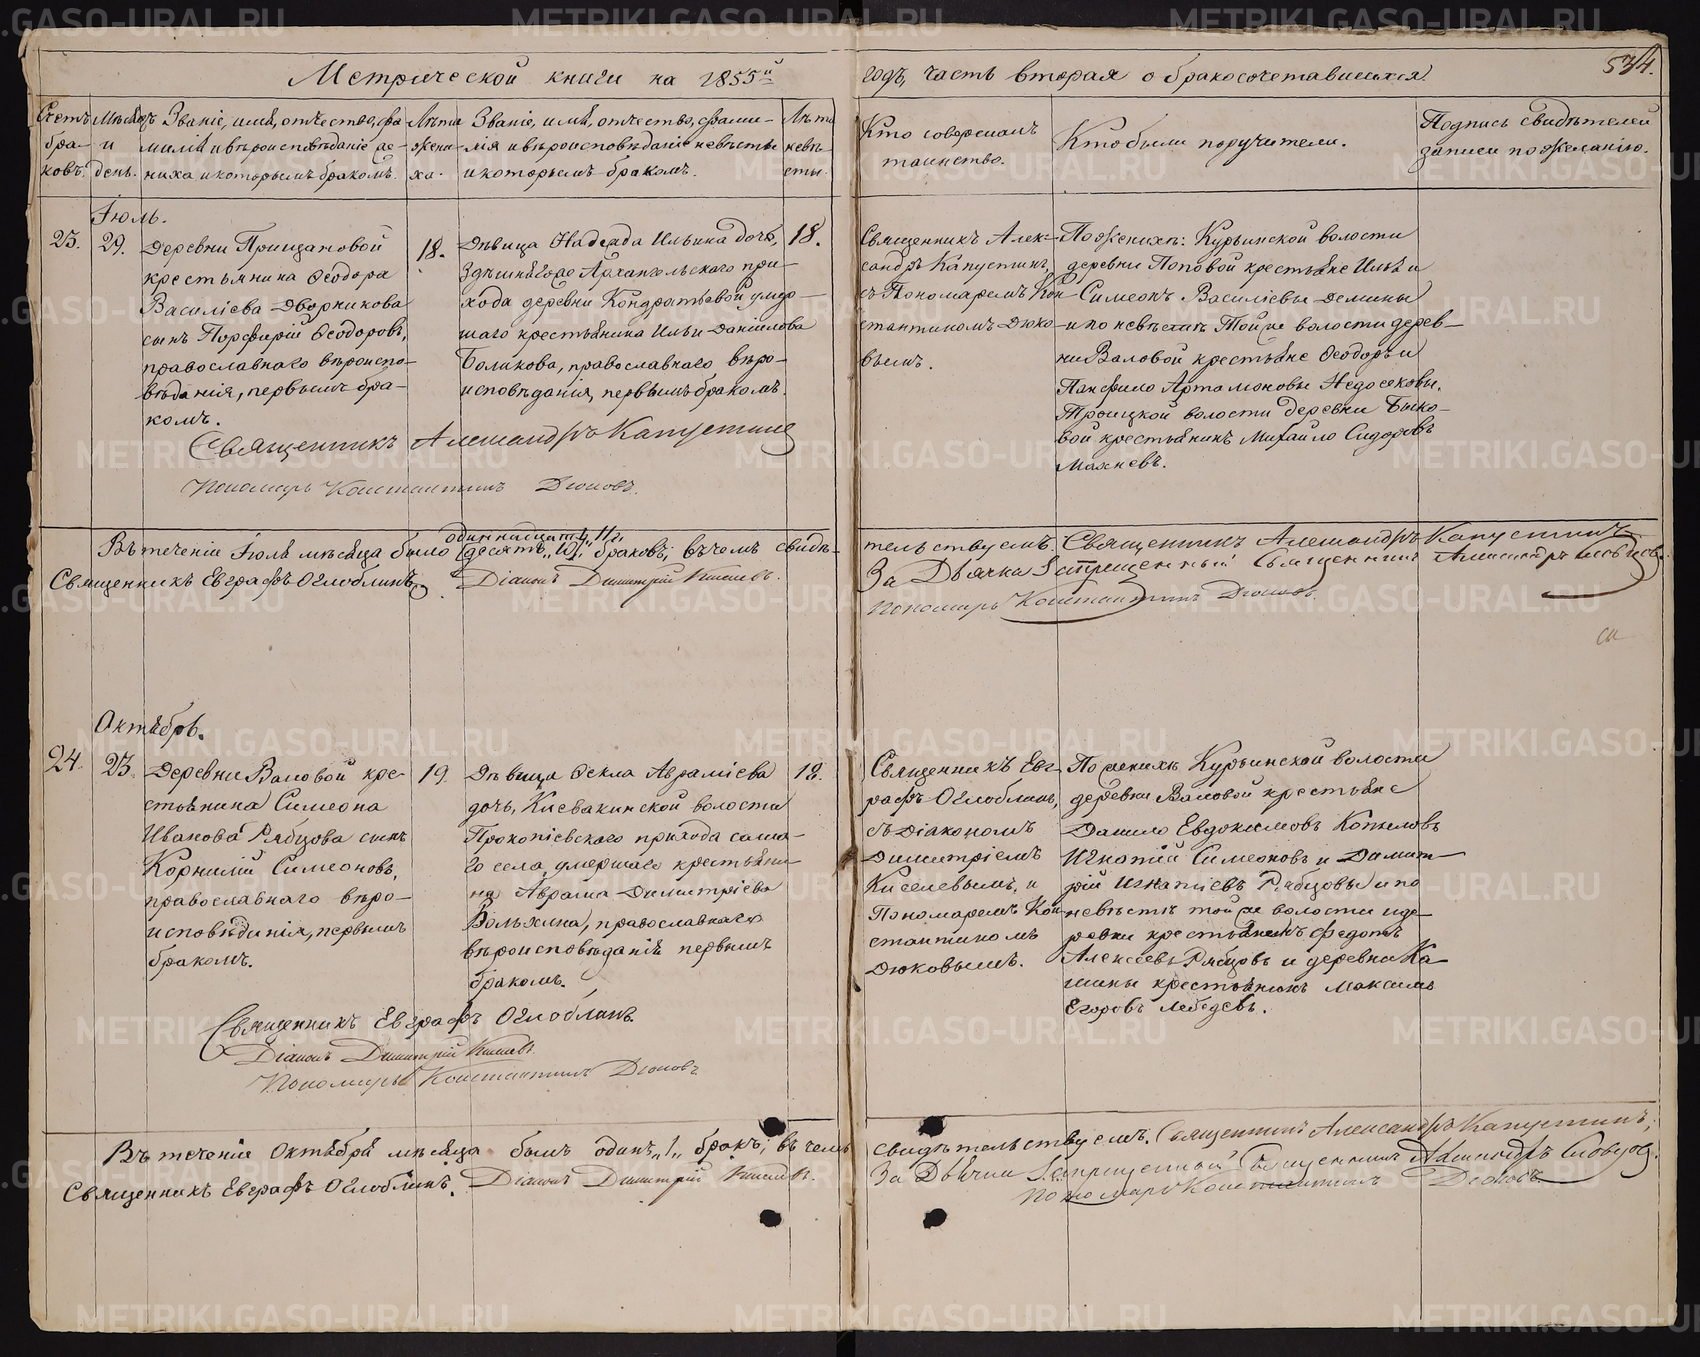 Метрической книги на 1855й
годъ, часть вторая о бракосочетавшихся.
534.
Счетъ бра- ковъ.
Мѣсяцъ и день.
Званіе, имя, отчество, фа-
милія и вѣроисповѣданіе же-
ниха и которымъ бракомъ.
Лѣта жени- ха.
Званіе, имя, отчество, фами-
лія и вѣроисповѣданіе невѣсты
и которымъ бракомъ.
Лѣта невѣ- сты.
Кто совершалъ
таинство.
Кто были поручители.
Подпись свидѣтелей
записи по желанію.
Іюль.
23.
29.
Деревни Прищановой
крестьянина Ѳеодора
Василіева Дворникова
сынъ Порфирій Ѳеодоровъ,
православнаго вѣроиспо-
вѣданія, первымъ бра-
комъ.
18.
Дѣвица Надежда Ильина дочь,
здѣшняго Архангельскаго при-
хода деревни Кондратьевой умер-
шаго крестьянина Ильи Даніилова
православнаго вѣро-
исповѣданія, первымъ бракомъ.
18.
Священникъ Алек-
сандръ Капустинъ,
съ Пономаремъ Кон-
стантиномъ Дюко-
вымъ.
По женихѣ: Курьинской волости
деревни Поповой крестьяне Илья и
Симеонъ Василіевы Демины
и по невѣстѣ Той же волости дерев-
ни Валовой крестьяне Ѳеодоръ и
Панфило Артамоновы Недосековы.
Троицкой волости деревни Быко-
вой крестьянинъ Михайло Сидоровъ
Махневъ.
Священникъ Александръ Капустинъ
Пономарь Константинъ Дюковъ.
одиннадцать „11„
Въ теченіи Іюля мѣсяца было десять „10„ браковъ, въ чемъ свидѣ-
тельствуемъ. Священникъ Александръ Капустинъ
Священникъ Евграфъ Оглоблинъ.
Діаконъ Димитрій Киселевъ.
За Дьячка Запрещенный Священникъ Александръ
Пономарь Константинъ Дюковъ
Октябрь.
24.
23.
Деревни Валовой кре-
стьянина Симеона
Иванова Рябцова сынъ
Корнилій Симеоновъ,
православнаго вѣро-
исповѣданія, первымъ
бракомъ.
19.
Дѣвица Ѳекла Авраміева
дочь, Киевакинской волости
Прокопіевскаго прихода сама-
го села, умершаго крестьяни-
на Аврама Димитріева
православнаго
вѣроисповѣданія первымъ
бракомъ.
18.
Священникъ Евг-
рафъ Оглоблинъ,
съ Діакономъ
Димитріемъ
Киселевымъ, и
Пономаремъ Кон-
стантиномъ
Дюковымъ.
По женихѣ Курьинской волости
деревни Валовой крестьяне
Данило Евдокимовъ Копыловъ
Игнатій Симеоновъ и Димит-
рій Игнатіевъ Рябцовы и по
невѣстѣ той же волости и де-
ревни крестьянинъ Федотъ
Алексѣевъ Рябцовъ и деревни Ка-
шины крестьянинъ Максимъ
Егоровъ Лебедевъ.
Священникъ Евграфъ Оглоблинъ.
Діаконъ Димитрій Киселевъ.
Пономарь Константинъ Дюковъ
Въ теченіи Октября мѣсяца былъ одинъ „1„ бракъ, въ чемъ
свидѣтельствуемъ. Священникъ Александръ Капустинъ,
Священникъ Евграфъ Оглоблинъ.
Діаконъ Димитрій Киселевъ.
За Дьячка Запрещенный Священникъ Александръ
Пономарь Константинъ Дюковъ.
METRIKI.GASO-URAL.RU